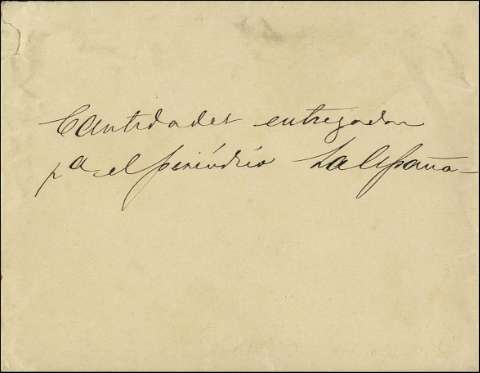 Cantidades entregadas
pª el periódico La España